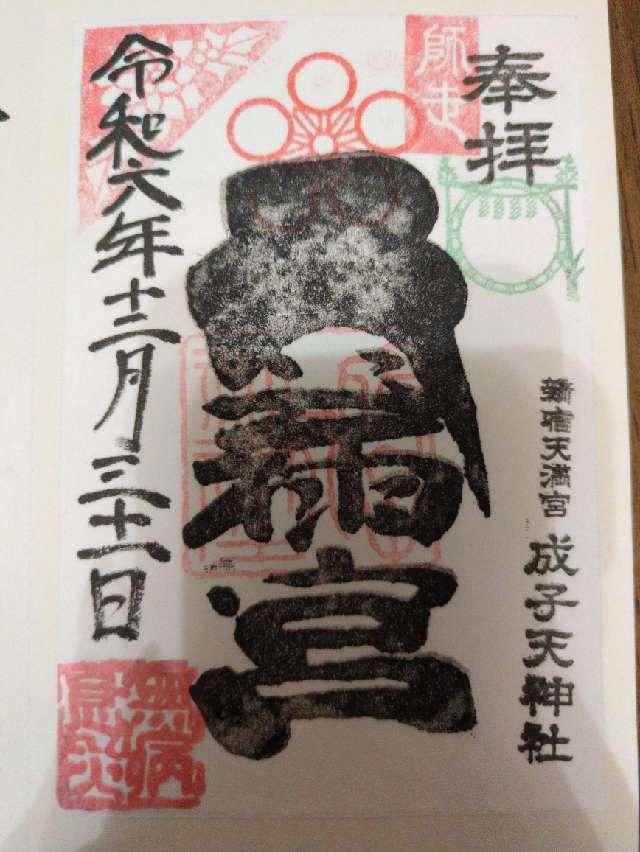 奉拝
師走
新宿天満宮
成子天神社
宮
令和六年十二月三十一日
無病
息災